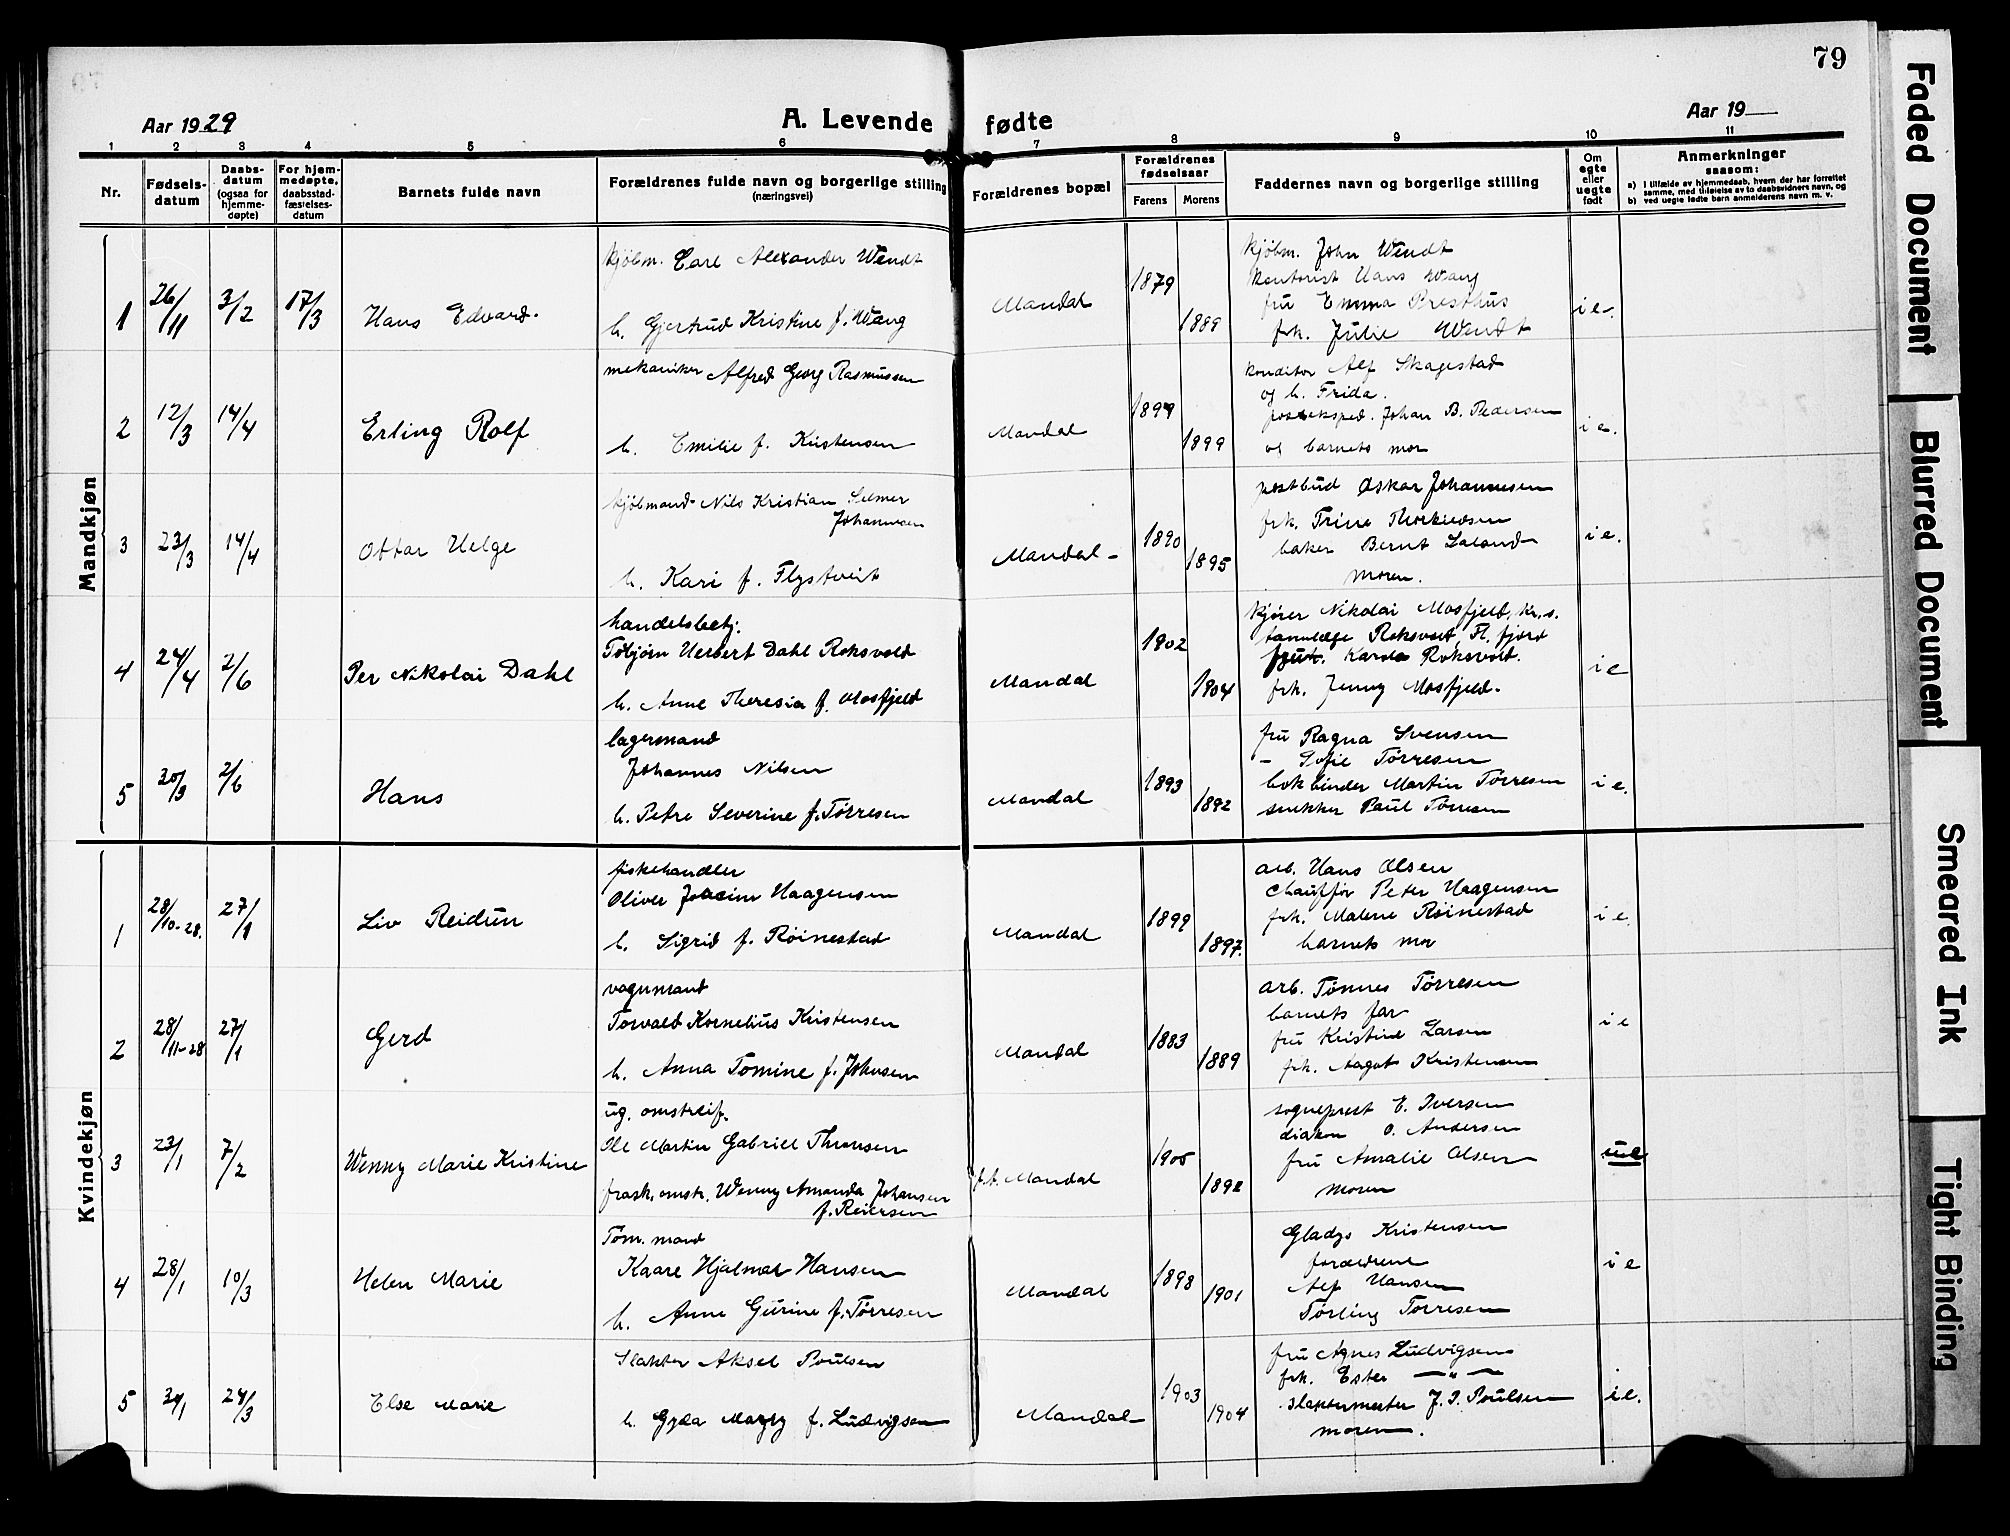 79
Aar 1929
A. Levende fødte
Aar 19
1 2 3 4 5 6 7 8 9 10 11
Nr.
Fødsels-datum
Daabs-datum (ogsaa for hjemme-døpte)
For hjem-medøpte, daabsstad-fæstelses-datum
Barnets fulde navn
Forældrenes fulde navn og borgerlige stilling (næringsvei)
Forældrenes bopæl
Forældrenes fødselsaar
Farens Morens
Faddernes navn og borgerlige stilling
Om egte eller uegte født
Anmerkninger saasom:
a) I tilfælde av hjemmedaab, hvem der har forrettet samme, med tilføielse av to daabsvidners navn, og
b) ved uegte fødte barn anmelderens navn m. v.
Mandkjøn
1 26/11 3/2 17/3 Hans Edvard.
kjøbm. Carl Alexander Wendt
h. Gjertrud Kristine f. Wang
Mandal 1879 1889
kjøbm. John Wendt
kontorist Hans Wang
fru Emma Presthus
frk. Julie Wendt
i e.
2 12/3 14/4 Erling Rolf
mekaniker Alfred Georg Rasmussen
h. Emilie f. Kristensen
Mandal 1899
konditor Alf Skagestad
og h. Frida.
posteksped. Johan B. Pedersen
og barnets mor
i e.
3 23/3 14/4 Ottar Helge
kjøbmand Nils Kristian Selmer
Johannesen
h. Kari f. Flystveit
Mandal 1890 1895
postbud Oskar Johannesen
frk. Trine
baker Bernt
moren.
i e.
4 24/4 2/6 Per Nikolai Dahl
handelsbetj.
Tobjørn Herbert Dahl Roksvold
h. Anne Theresia f. Mosfjeld
Mandal 1902 1904
kjører Nikolai Mosfjeld, Kr. s.
tannlæge Roksvold, Fl. fjord
Roksvold.
frk. Jenny Mosfjeld.
i e
5 30/3 2/6 Hans
lagermand
Johannes Nilsen
h. Petre Severine f. Tørresen
Mandal 1893 1892
fru Ragna Svensen
– Sofie Tørresen
bokbinder Martin Tørresen
snekker Paul Tørresen
i e.
Kvindekjøn
1 28/10-28. 27/1 Liv Reidun
fiskehandler
Oliver Joacim Haagensen
h. Sigrid f. Røinestad
Mandal 1899 1897.
arb. Hans Olsen
chauffør Peter Haagensen
frk. Malene Røinestad
barnets mor
i e.
2 28/11-28 27/1 Gerd
vognmand
Torvald Kornelius Kristensen
h. Anna Tomine f. Johnsen
Mandal 1883 1889
arb. Tønnes Tørresen
barnets far
fru Kristine Larsen
frk. Aagot Kristensen
i e
3 23/1 7/2 Wenny Marie Kristine
ug. omstreif.
Ole Martin Gabriel Thorsen
frask. omstr. Wenny Amanda Johansen
f. Reiersen
f.t. Mandal 1892
sogneprest E. Iversen
diakon O. Andersen
fru Amalie Olsen
moren
u e
4 28/1 10/3 Helen Marie
Tøm. mand
Kaare Hjalmar Hansen
h. Anne Gurine f. Tørresen
Mandal 1898 1901
Gladys Kristensen
forældrene
Alf Hansen
Tørling Tørresen
i e
5 24/3 Else Marie
Slakter Aksel Poulsen
h. Gyda Magny f. Ludvigsen
Mandal 1903 1904
fru Agnes Ludvigsen
frk. Ester — " —
slaktermester J. I. Poulsen
moren.
i e.
Faded Document
Blurred Document
Smeared Ink
Tight Binding